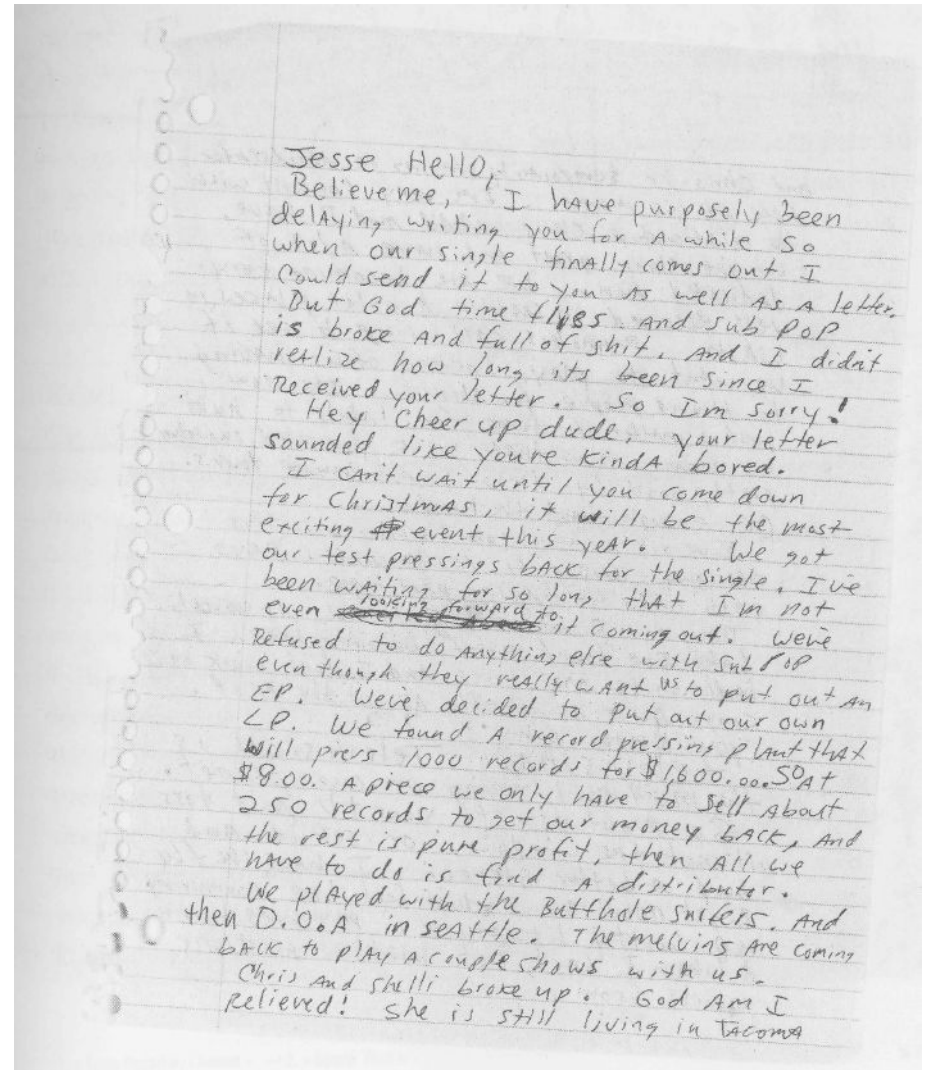 Jesse Hello,
Believe me, I have purposely been
delaying writing you for a while so
when our single finally comes out I
Could send it to you as well as a letter.
But God time flies. And sub pop
is broke and full of shit. And I didn't
realize how long its been since I
Received your letter. So Im sorry!
Hey Cheer up dude, your letter
sounded like youre kinda bored.
I can't wait until you come down
for Christmas, it will be the most
exciting event this year. We got
our test pressings back for the single. I've
been waiting for so long that I'm not
even looking forward to it coming out. weve
Refused to do anything else with sub pop
even though they really want us to put out an
EP. Weve decided to put out our own
LP. We found a record pressing plant that
will press 1000 records for $1,600.00. So at
$8.00. a piece we only have to sell about
250 records to get our money back, and
the rest is pure profit, then all we
have to do is find a distributer.
We played with the Butthole surfers. And
then D.O.A in seattle. The melvins are coming
back to play a couple shows with us.
Chris and Shelli broke up. God Am I
Relieved! she is still living in Tacoma